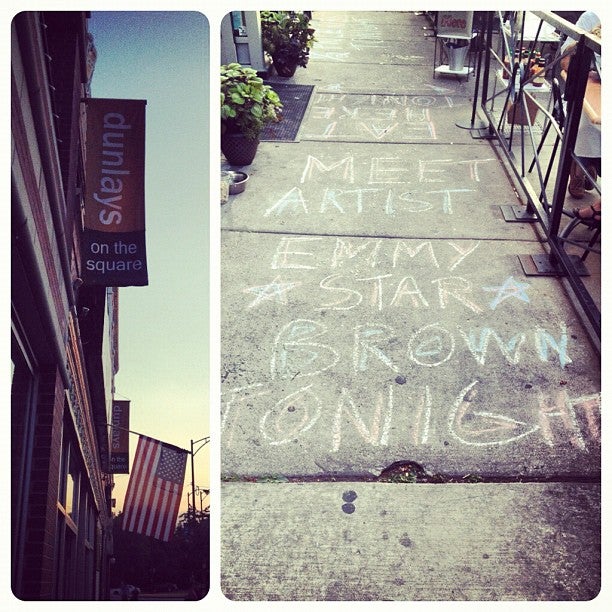 dunlays
on the
square
dunlays
on the
MEET
ARTIST
EMMY
STAR
BROWN
TONIGHT